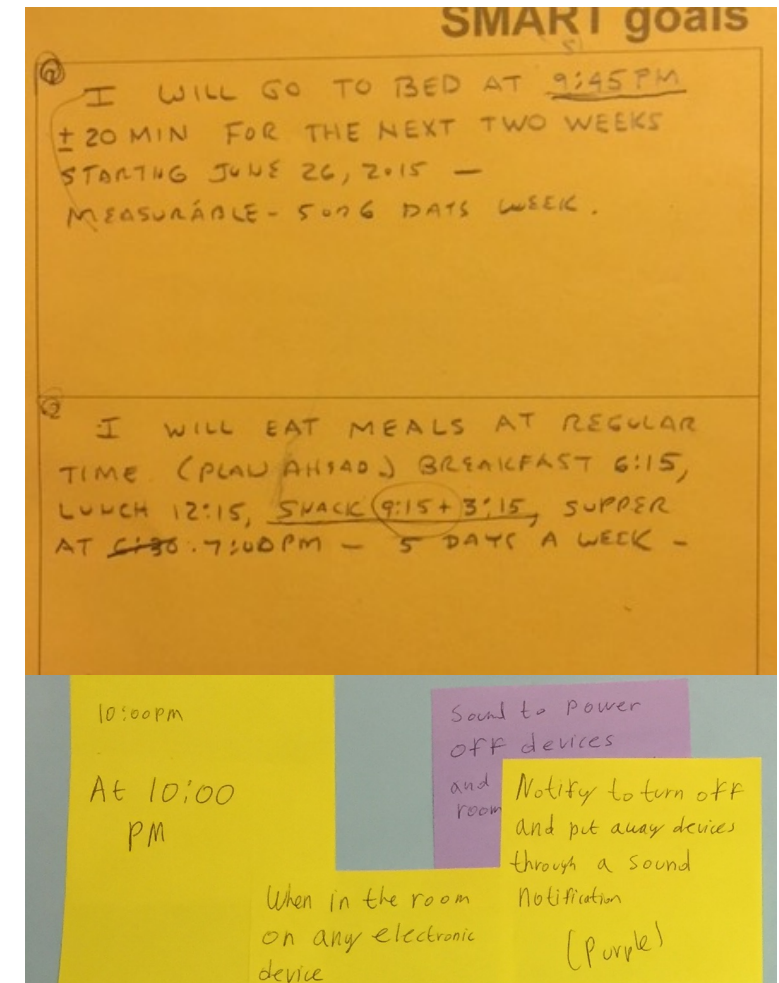 SMART goals
1
I WILL GO TO BED AT 9:45PM
± 20 MIN FOR THE NEXT TWO WEEKS
STARTING JUNE 26, 2015 —
MEASURABLE - 5 or 6 DAYS WEEK.
2
I WILL EAT MEALS AT REGULAR
TIME (PLAN AHEAD) BREAKFAST 6:15,
LUNCH 12:15, SNACK 9:15 + 3:15, SUPPER
AT 6:30 7:00PM — 5 DAYS A WEEK -
10:00pm
At 10:00
PM
When in the room
on any electronic
device
Sound to power
off devices
and
room
Notify to turn off
and put away devices
through a sound
notification
(purple)